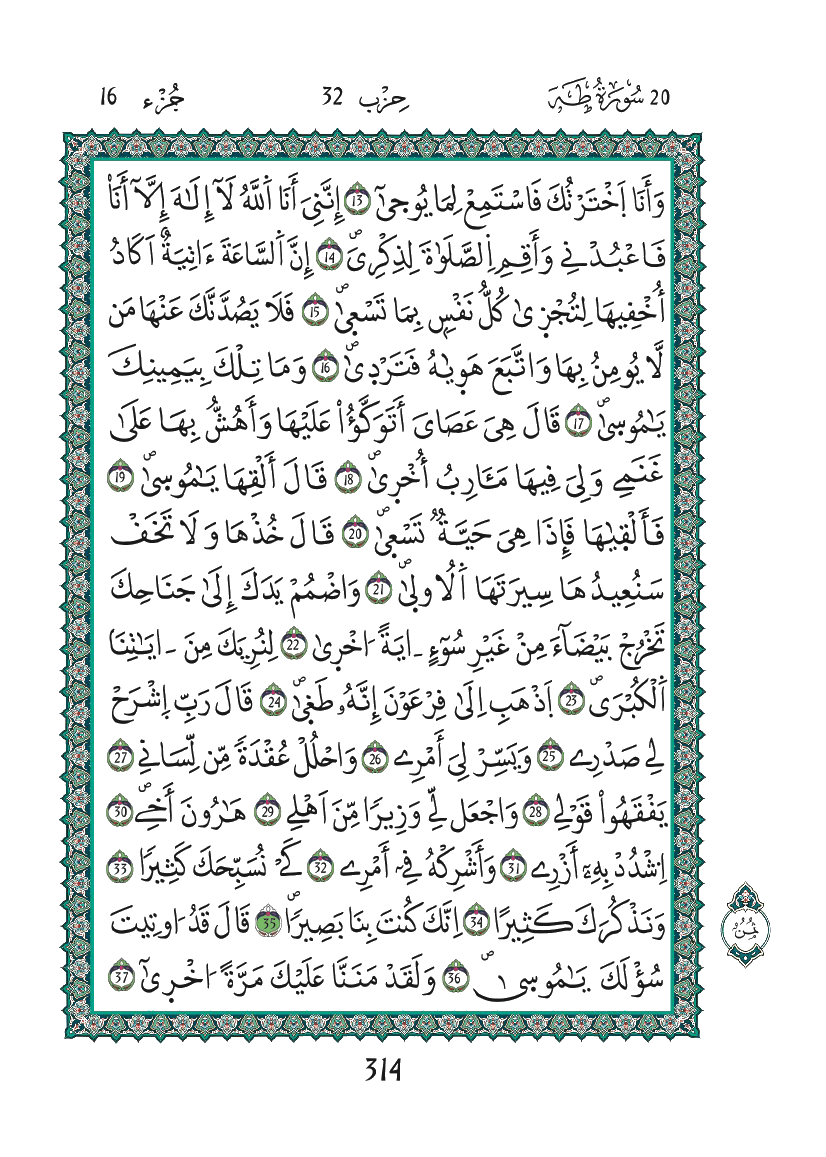 20 سُورَةُ طَهَ حِزْب 32 جُزْء 16
وَأَنَا اَخْتَرْتُكَ فَاسْتَمِعْ لِمَا يُوحىٰٓ 13 إِنَّنِىَ أَنَا اَللَّهُ لَآ إِلَٰهَ إِلَّآ أَنَا۠
فَاعْبُدْنِے وَأَقِمِ اِ۬لصَّلَوٰةَ لِذِكْرِىَ ۖ 14 إِنَّ اَ۬لسَّاعَةَ ءَاتِيَةٌ اَكَادُ
أُخْفِيهَا لِتُجْز۪ىٰ كُلُّ نَفْسِۭ بِمَا تَسْع۪ىٰ ۖ 15 فَلَا يَصُدَّنَّكَ عَنْهَا مَن
لَّا يُومِنُ بِهَا وَاتَّبَعَ هَو۪يٰهُ فَتَرْد۪ىٰ ۖ 16 وَمَا تِلْكَ بِيَمِينِكَ
يَٰمُوس۪ىٰ ۖ 17 قَالَ هِىَ عَصَاىَ أَتَوَكَّؤُاْ عَلَيْهَا وَأَهُشُّ بِهَا عَلَىٰ
غَنَمِے وَلِىَ فِيهَا مَـَٔارِبُ أُخْر۪ىٰ ۖ 18 قَالَ أَلْقِهَا يَٰمُوس۪ىٰ ۖ 19
فَأَلْق۪يٰهَا فَإِذَا هِىَ حَيَّةٌ تَسْع۪ىٰ ۖ 20 قَالَ خُذْهَا وَلَا تَخَفْ
سَنُعِيدُهَا سِيرَتَهَا اَ۬لُاول۪ىٰ ۖ 21 وَاضْمُمْ يَدَكَ إِلَىٰ جَنَاحِكَ
تَخْرُجْ بَيْضَآءَ مِنْ غَيْرِ سُوٓءٍ ـ ايَةً اخْر۪ىٰ 22 لِنُرِيَكَ مِنَ ـ ايَٰتِنَا
اَ۬لْكُبْرَى ۖ 23 اَ۪ذْهَبِ اِلَىٰ فِرْعَوْنَ إِنَّهُۥ طَغ۪ىٰ ۖ 24 قَالَ رَبِّ اِ۪شْرَحْ
لِے صَدْرِے 25 وَيَسِّرْ لِىَ أَمْرِے 26 وَاحْلُلْ عُقْدَةً مِّن لِّسَانِے 27
يَفْقَهُواْ قَوْلِے 28 وَاجْعَل لِّے وَزِيرًا مِّنَ اَهْلِے 29 هَٰرُونَ أَخِے ۖ 30
اِ۟شْدُدْ بِهِۦٓ أَزْرِے 31 وَأَشْرِكْهُ فِےٓ أَمْرِے 32 كَےْ نُسَبِّحَكَ كَثِيرًا 33
وَنَذْكُرَكَ كَثِيرًا 34 اِنَّكَ كُنتَ بِنَا بَصِيرًا ۖ 35 قَالَ قَدُ اوتِيتَ
سُؤْلَكَ يَٰمُوس۪ىٰ ۖ 36 وَلَقَدْ مَنَنَّا عَلَيْكَ مَرَّةً اخْر۪ىٰٓ 37
ثُمُن
314